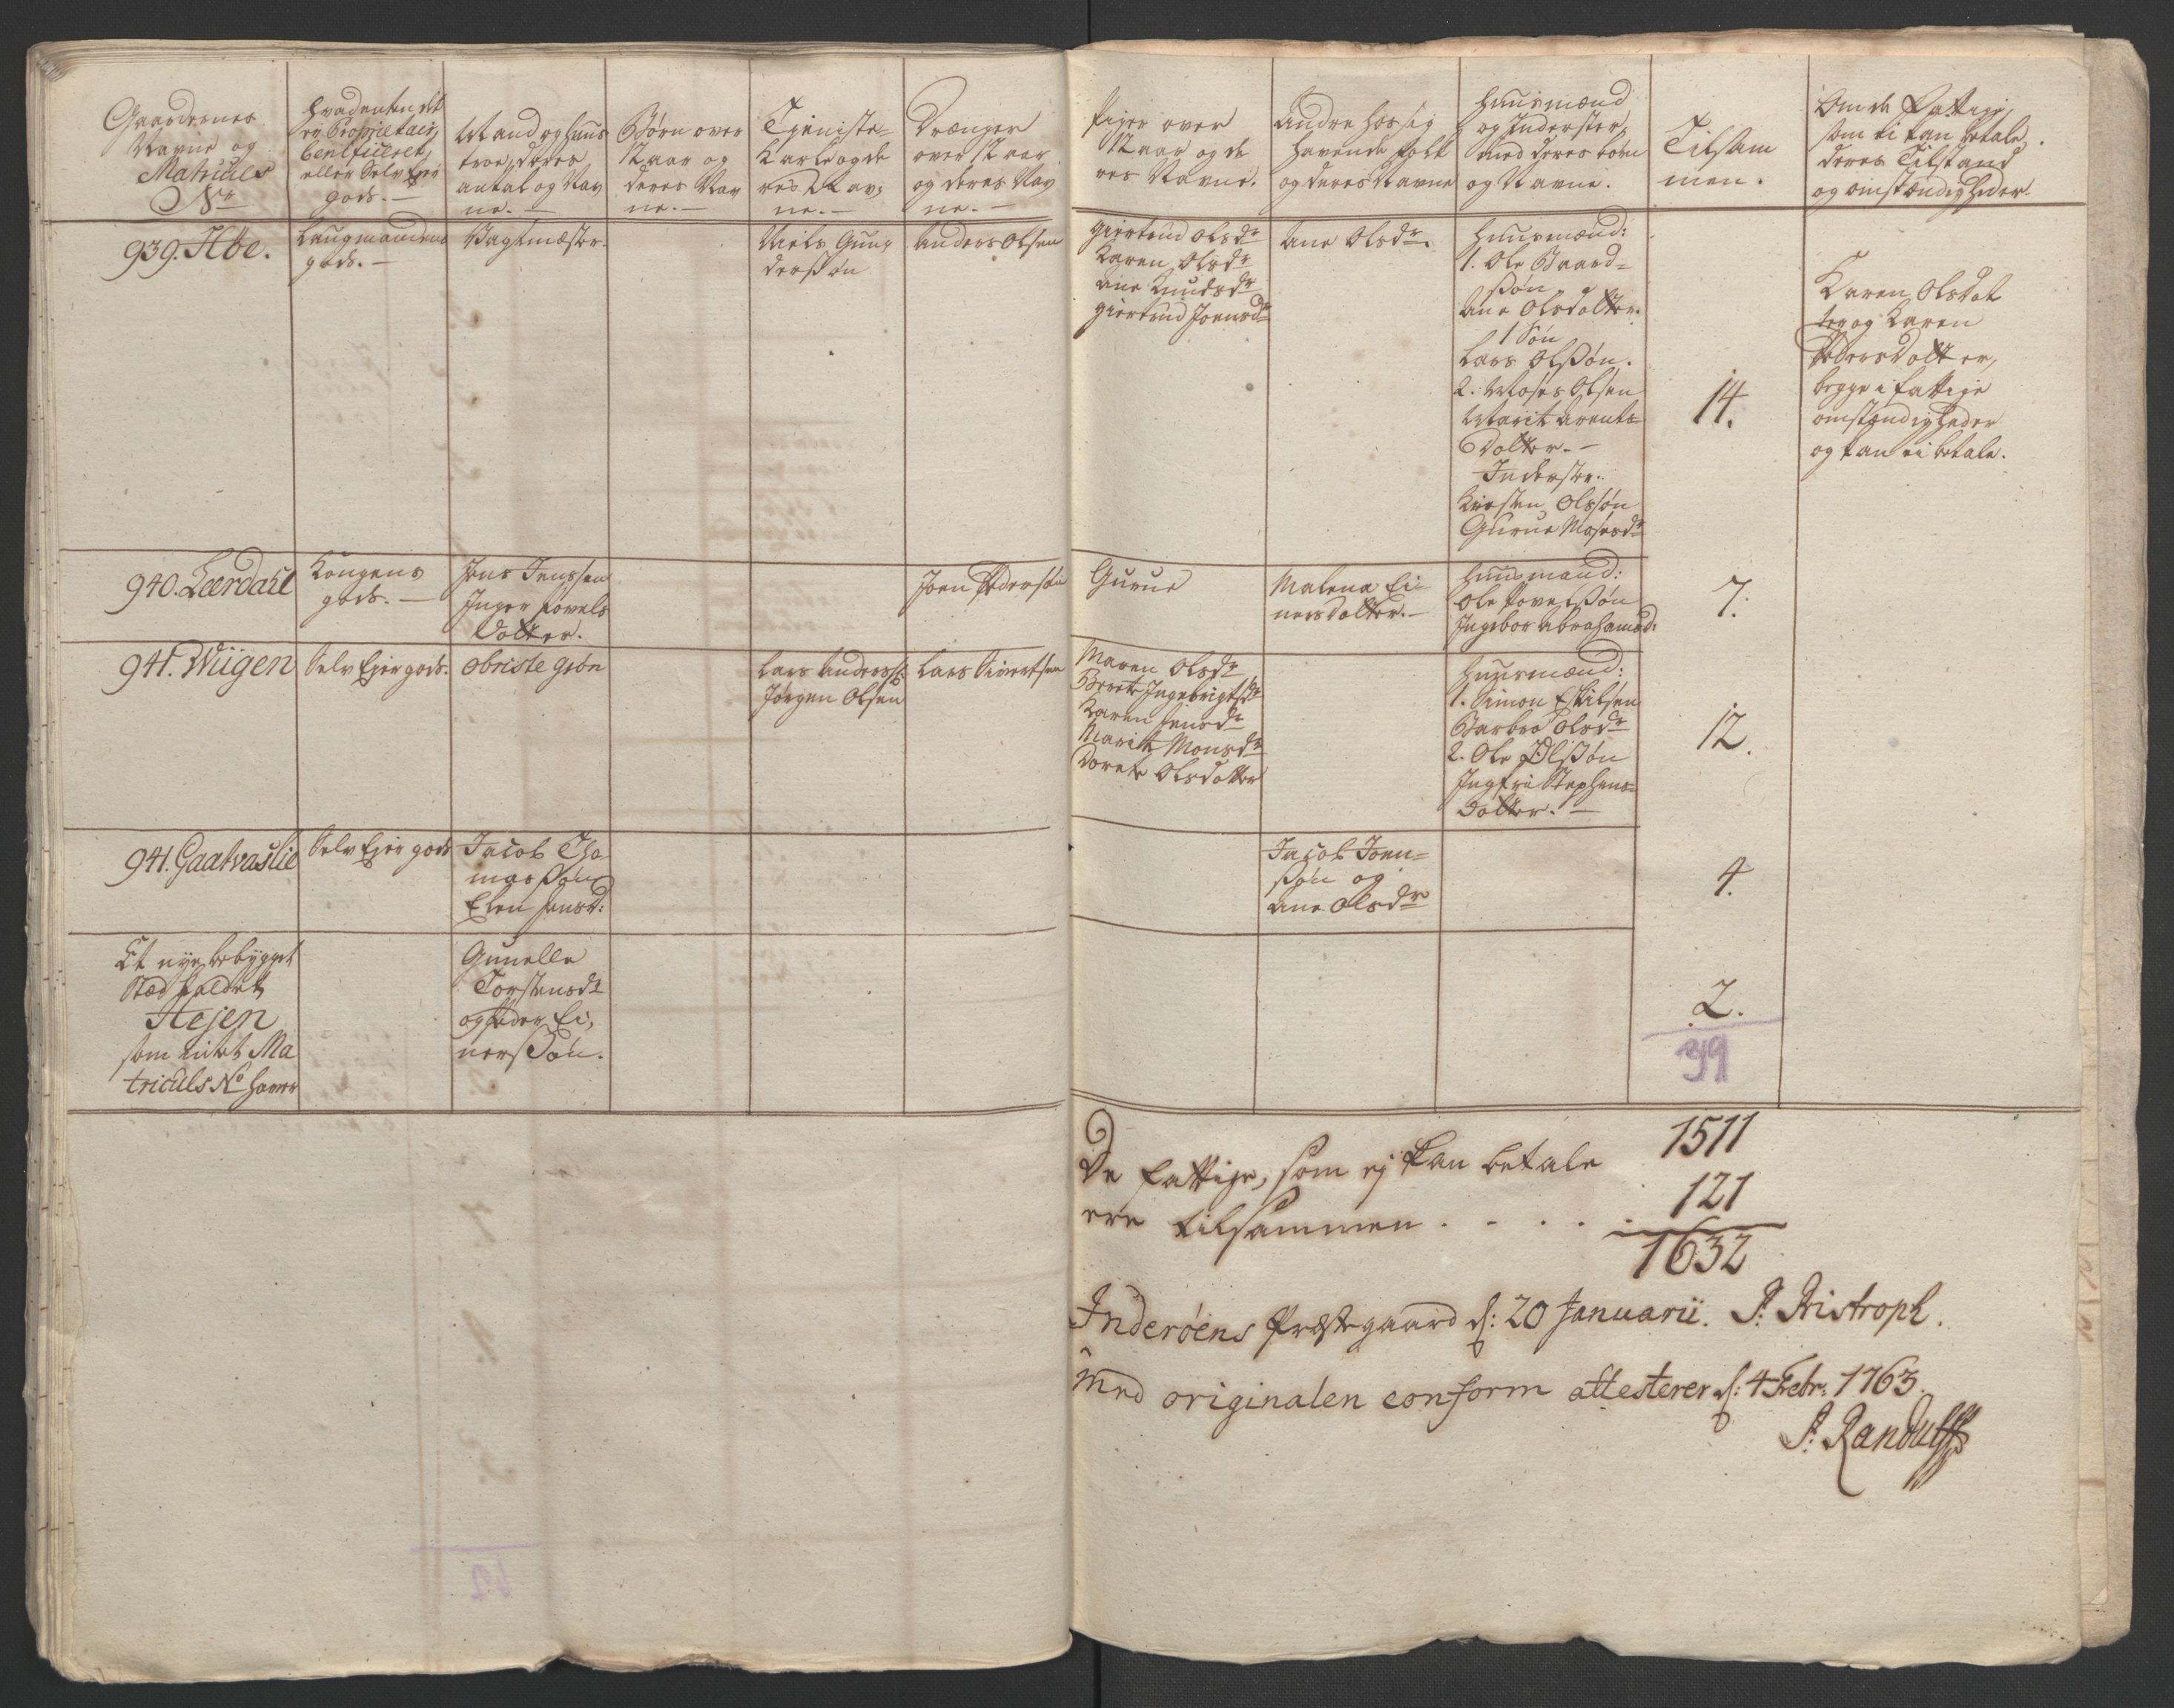 Gaardernes
Navne og
Matriculs
No
Hvadenten det
er Proprietair,
beneficeret,
eller Selv Ejer
gods. —
Mand og Huus
troe, deres
antal og Nav
ne. —
Børn over
12 aar og
deres Nav
ne. —
Tieniste-
Karle og de
res Nav,
ne. —
Drænger
over 12 aar
og deres Nav
ne. —
Piger over
12 aar og de
res Navne.
Andre hos sig
havende folk
og deres Navne
Huusmænd
og Inderster,
med deres børn
og Navne.
Tilsam
men.
Om de Fattige,
som ei kan betale,
deres Tilstand
og omstændigheder.
939. Hoe.
Laugmandens
gods. —
Pagtmæster.
Niels Gun
dersøn
Anders Olsen
giertrud Olsdr
Karen Olsdr
Ane Knudsdr
giertrud Joensdr
Ane Olsdr.
Huusmænd:
1. Ole Baard=
søn
Ane Olsdatter.
1 Søn
Lars Olssøn.
2. Moses Olsen
Marit Arents=
Datter. —
Inderster.
Kirsten Olssøn
Gurue Mosesdr
14.
Karen Olsdat
ter og Karen
Pedersdatter,
begge i fattige
omstændigheder
og kan ei betale.
940. Lærdahl
Kongens
gods. —
Jens Jenssen
Inger Povels
Datter.
Joen Pedersøn
Gurue
Malena Ei-
nersdatter. —
Huusmand:
Ole Povelssøn
Ingebor Abrahamsd:
7.
941. Wiigen
Selv Ejer gods.
Obriste Grön
Lars Anderss:
Jørgen Olsen
Lars Sivertsen
Maren Olsdr
Berete Ingebrigtsdr
Karen Jensdr
Marit Monsdr
Dorete Olsdatter
Huusmænd:
1. Simon Eskilsen
Barbro Olsdr
2. Ole Olssøn
Ingfri Stephens=
Datter. —
12.
941. Gaatvaslie
Selv Ejer gods
Jacob Tho
massøn
Elen Jensd:
Jacob Joen=
søn og
Ane Olsdr
4.
Et nye bebygget
Stæd kaldet
Hejen
som intet Ma
triculs No haver
Gunelle
Torstensdr
og Peder Ei,
nersSøn.
2.
39
1511
De fattige, som ej kan betale
ere tilsammen . . . . . 121
1632
Inderøens Præstegaard d: 20 Januarii. P. Ristroph.
med originalen conform attesterer d: 4 Febr: 1763.
P. Randulff